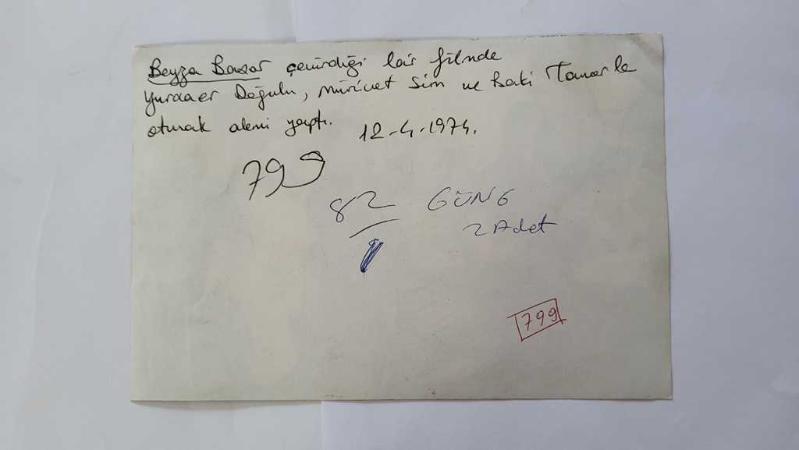 Beyza Başar çevirdiği bir filmde
Yurdaer Doğulu, Mürüvet Sim ve Baki Tamer'le
oturak alemi yaptı. 12-4-1974.
799
82 GÜNG
2 Adet
799